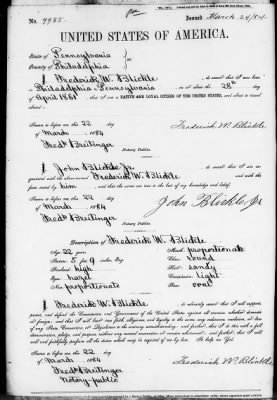 No. 9985. Issued March 24/84
UNITED STATES OF AMERICA.
State of Pennsylvania
County of Philadelphia
I Frederick W. Blickle, do swear that I was born
Philadelphia Pennsylvania on or about the 28th day
of April 1861, that I am a NATIVE and LOYAL CITIZEN OF THE UNITED STATES, and about to travel
abroad.
Sworn to before me, this 22 day
of March 1884
Fredk Breitinger
Frederick W. Blickle
I John Blickle Jr
acquainted with the above-named Frederick W. Blickle, and that the facts
stated by him are true to the best of my knowledge and belief.
Sworn to before me, this 22 day
of March 1884
Fredk Breitinger
John Blickle Jr
Description of Frederick W. Blickle
Age: 22 years Mouth: proportionate
Stature: 5 feet 9 inches, Eng. Chin: round
Forehead: high Hair: sandy
Eyes: hazel Complexion: light
Nose: proportionate Face: oval
I Frederick W. Blickle, do solemnly swear that I will support,
protect, and defend the Constitution and Government of the United States against all enemies, whether domestic
or foreign; and that I will bear true faith, allegiance, and loyalty to the same, any ordinance, resolution, or law
of any State, Convention, or Legislature to the contrary notwithstanding; and further, that I do this with a full
determination, pledge, and purpose, without any mental reservation or evasion whatsoever; and further, that I
will well and faithfully perform all the duties which may be required of me by law: So help me God.
Sworn to before me, this 22 day
of March 1884
Fredk Breitinger
Notary-public
Frederick W. Blickle